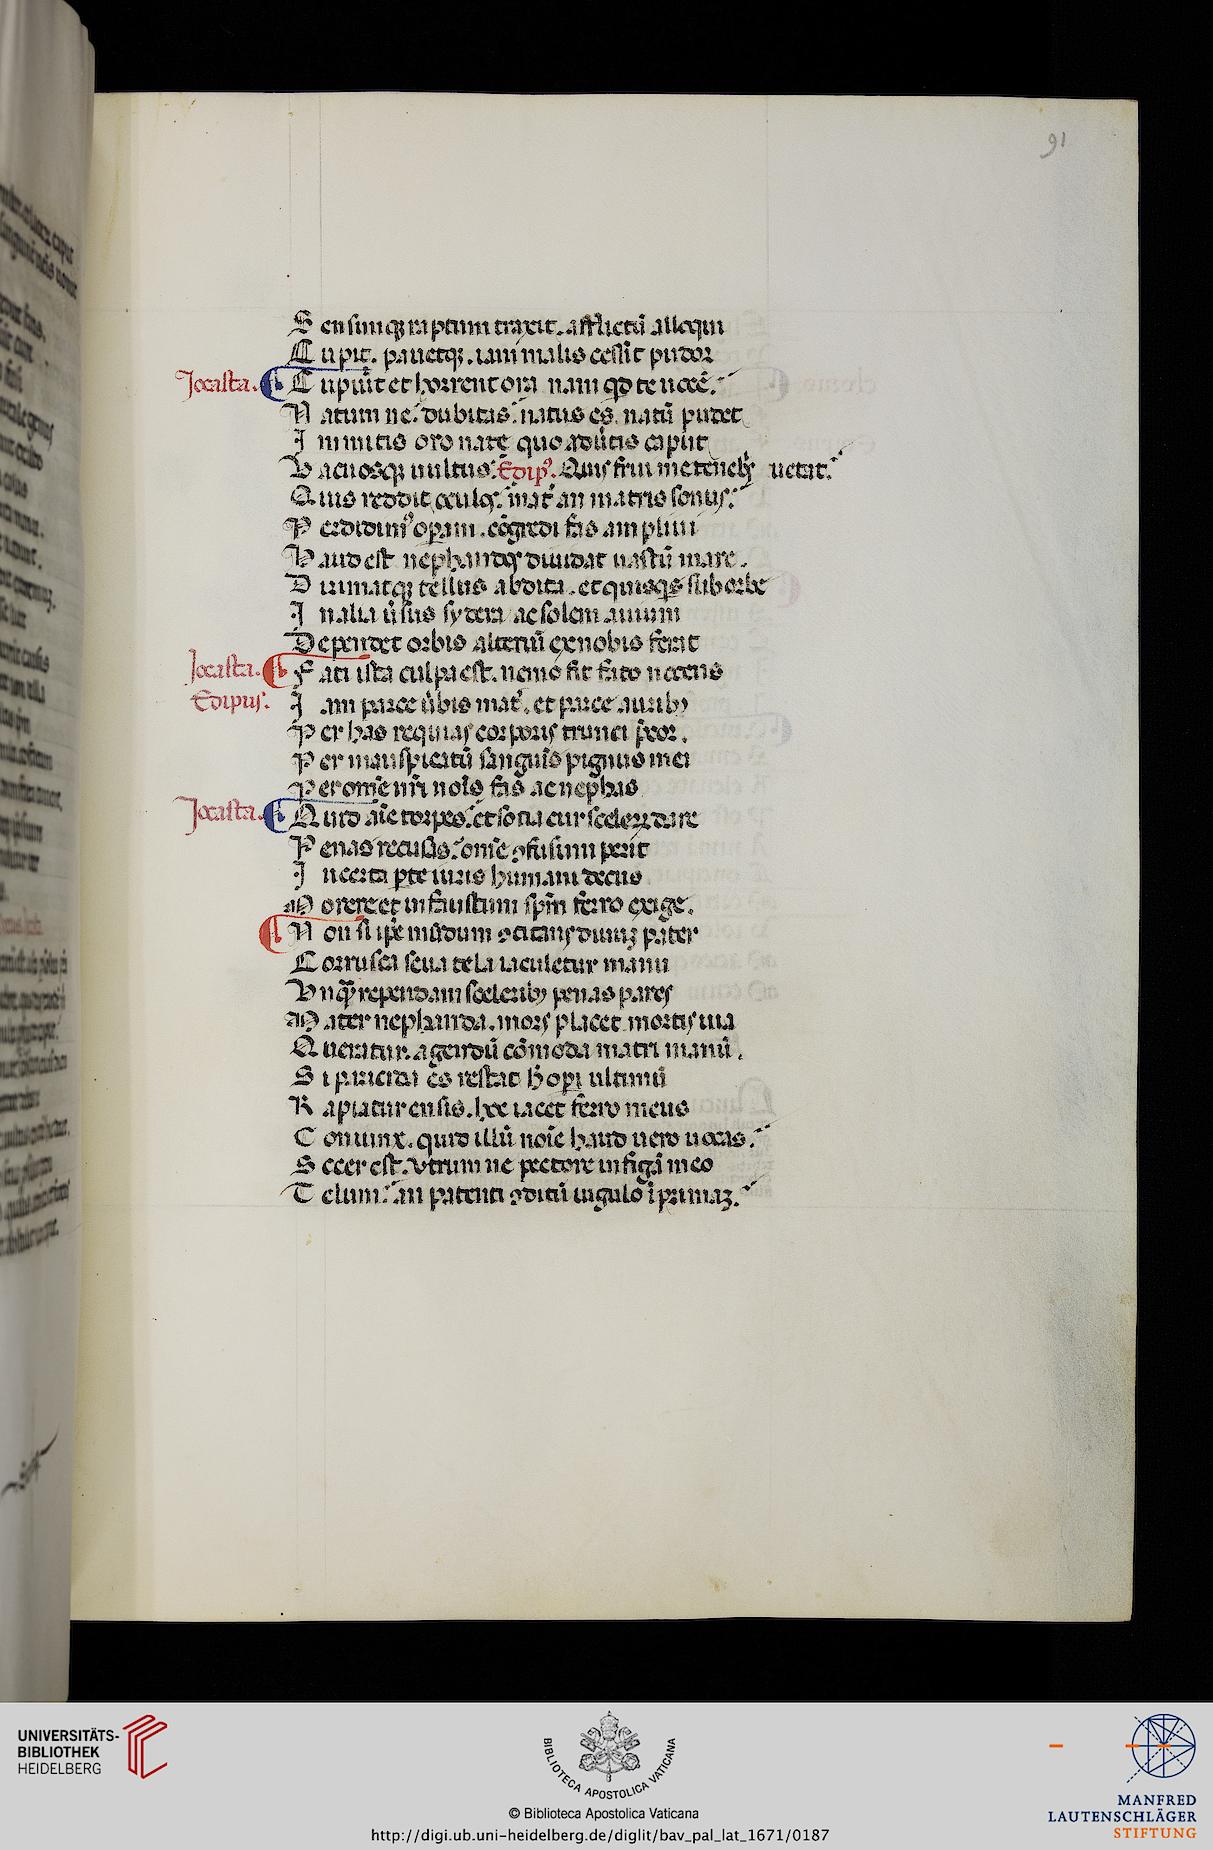 91
S ensumqȝ raptum traxit. afflictū alloqui
C upit. pauetqȝ. iam malis cessit pudor
Jocasta. C upiuit et horrent ora nam qd te uocē.
N atum ne. dubitas. natus es. natū pudet
I nuitus oro nate quo adutis caput
V acuosqȝ uultus. Edip9. Quis frui me tenebꝫ uetat.
Q uis reddit oculos. mat͛ an matris sonus.
P erdidim9 operam. cōgredi fas amplius
H aud est nephandos diuidat uastū mare.
D irimatqȝ tellus abdita. et quisqȝs sub orbe
I n alia ūsus sydera ac solem auium
Dependet orbis alterū ex nobis ferat
Jocasta. F ati ista culpa est. nemo fit fato nocens
Edipus. I am parce ūbis mat͛. et parce auribꝫ
P er has requias corporis trunci p̄cor.
P er inauspicatū sanguīs pignus mei
P er om̄e nr̄i nois fas ac nephas
Jocasta. Q uid aīe torpes. et socia cur scelerꝝ dare
P enas recusas. om̄e ꝯfusum perit
I ncerta pte iuris humani decus
M orere et infaustum spm̄ ferro exige.
N on si ipe mūdum ꝯcitans diuuꝫ pater
C orrusca seua tela iaculetur manu
V nqȝ rependam sceleribꝫ penas pares
M ater nephanda. mors placet mortis uia
Q ueratur. agendū cōmoda matri manū.
S i paricida es restat h̄ operi ultimū
R apiatur ensis. hoc iacet ferro meus
C oniunx. quid illū noīe haud uero uocas.
S ocer est. vtrum ne pectore infigā meo
T elum. an patenti ꝯditū iugulo īprimaꝫ.
UNIVERSITÄTS-
BIBLIOTHEK
HEIDELBERG
BIBLIOTECA APOSTOLICA VATICANA
© Biblioteca Apostolica Vaticana
http://digi.ub.uni-heidelberg.de/diglit/bav_pal_lat_1671/0187
MANFRED
LAUTENSCHLÄGER
STIFTUNG